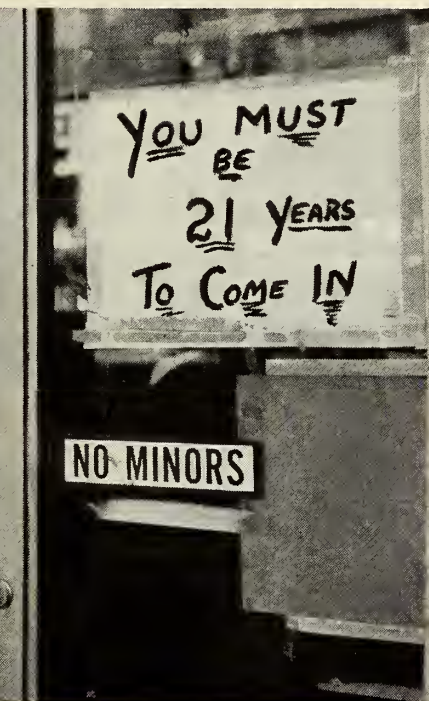 YOU MUST
BE
21 YEARS
TO COME IN
NO MINORS